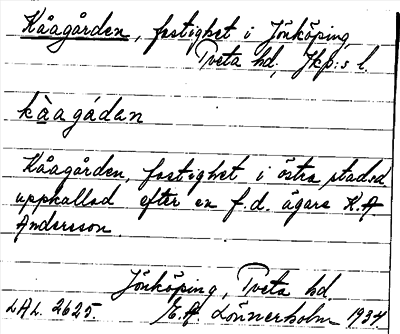 Kåagården, fastighet i Jönköping
Tveta hd, Jkp:s l.
kàagádan
Kåagården, fastighet i östra stads-
uppkallad efter en f.d. ägare K.A
Andersson.
Jönköping, Tveta hd
LAL. 2625. E.A. Lönnerholm 1934